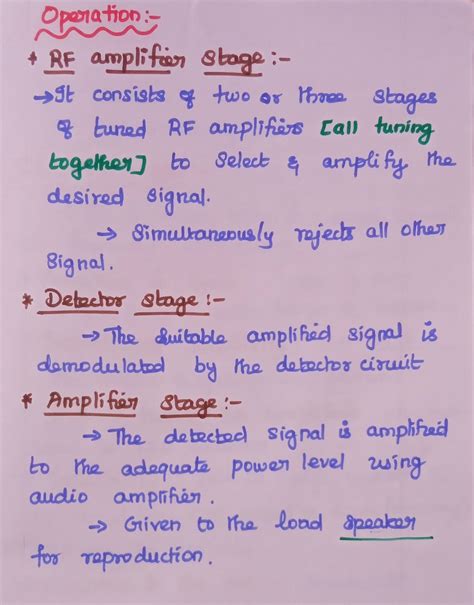 Operation:-
* RF amplifier stage:-
→ It consists of two or three stages
of tuned RF amplifiers [all tuning
together] to select & amplify the
desired signal.
→ Simultaneously rejects all other
signal.
* Detector stage:-
→ The suitable amplified signal is
demodulated by the detector circuit
* Amplifier stage:-
→ The detected signal is amplified
to the adequate power level using
audio amplifier.
→ Given to the load speaker
for reproduction.